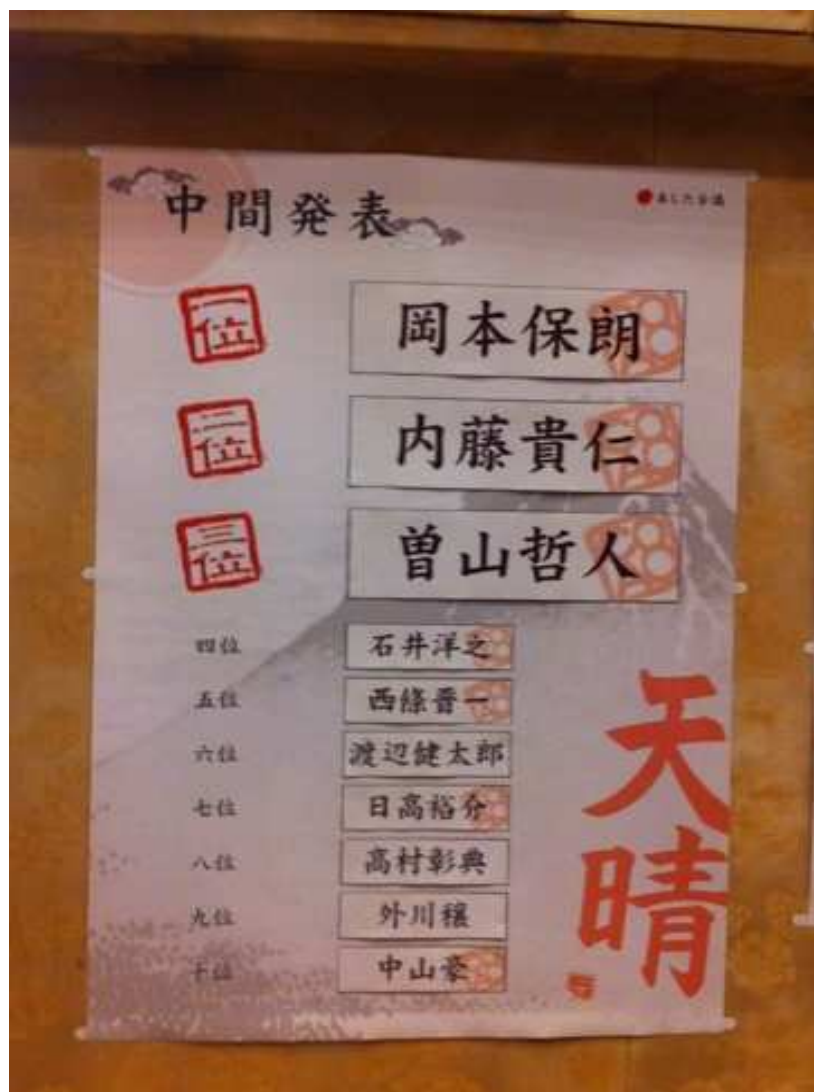 中間発表
あした会議
一位 岡本保朗
二位 内藤貴仁
三位 曽山哲人
四位 石井洋之
五位 西條晋一
六位 渡辺健太郎
七位 日高裕介
八位 高村彰典
九位 外川穣
十位 中山豪
天晴